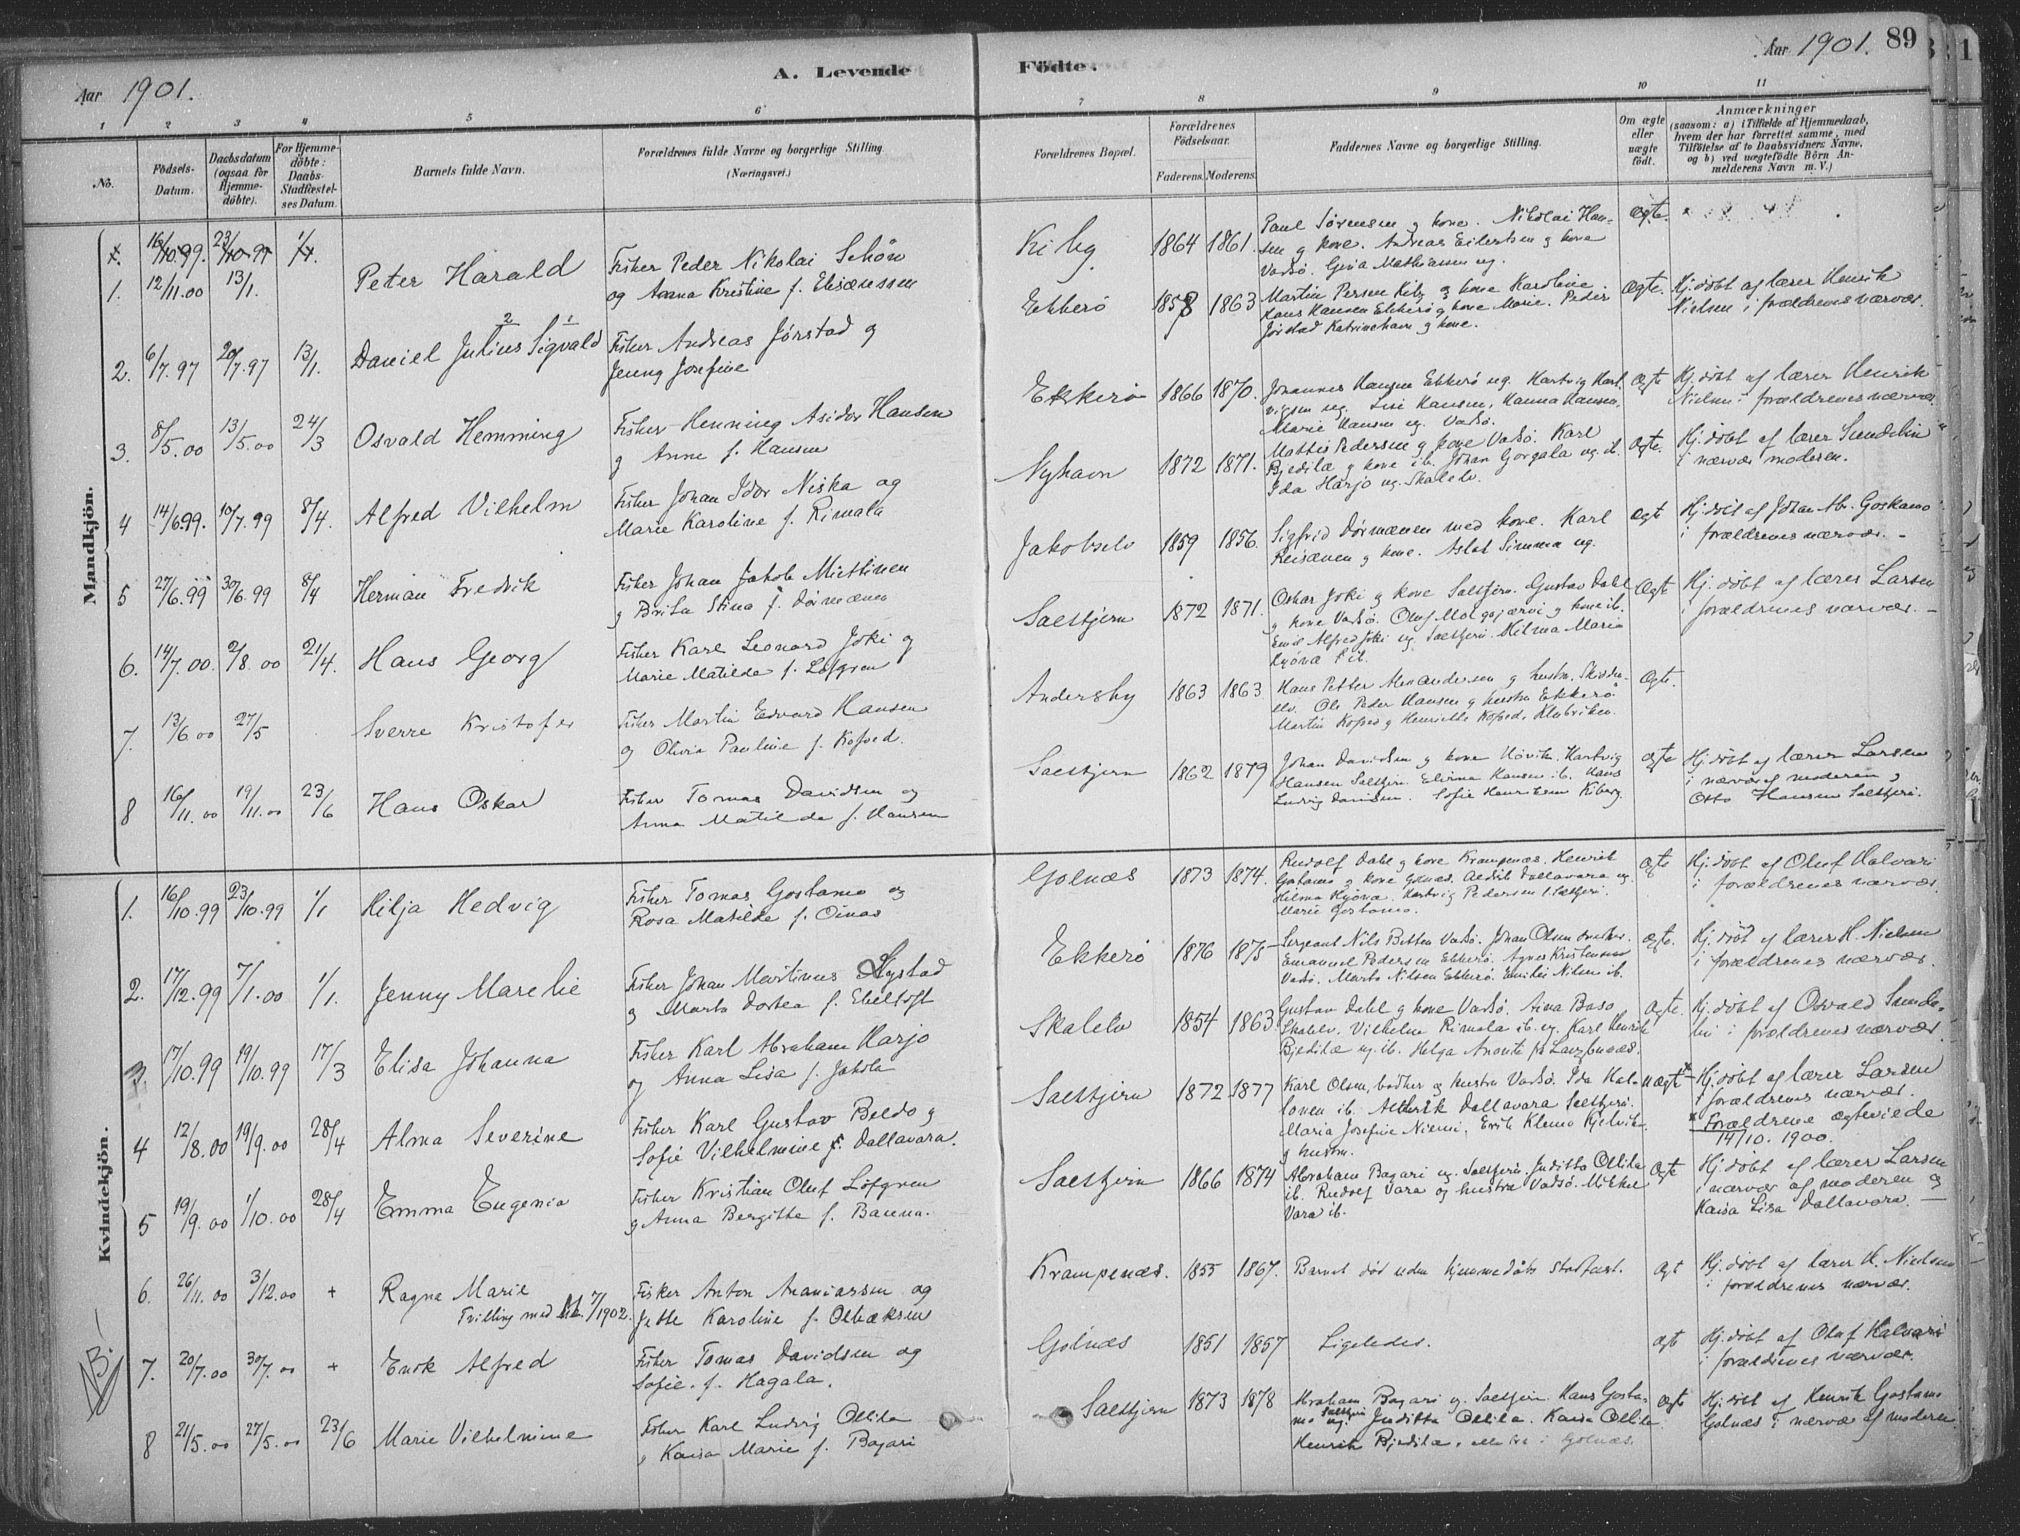 Aar 1901.
A. Levende
Födte.
Aar 1901. 89
1 2 3 4 5 6 7 8 9 10 11
No.
Födsels-
Datum.
Daabsdatum
(ogsaa for
Hjemme-
döbte).
For Hjemme-
döbte:
Daabs-
Stadfæstel-
ses Datum.
Barnets fulde Navn.
Forældrenes fulde Navne og borgerlige Stilling
(Næringsvei.)
Forældrenes Bopæl.
Forældrenes
Födselsaar.
Faderens. Moderens.
Faddernes Navne og borgerlige Stilling.
Om ægte
eller
uægte
födt.
Anmærkninger
(saasom: a) i Tilfælde af Hjemmedaab,
hvem der har forrettet samme, med
Tilföielse af to Daabsvidners Navne,
og b) ved uægtefödte Börn An-
melderens Navn m. V.)
Mandkjön.
1. 12/11.00 13/1. Peter Harald
Fisker Peder Nikolai Schön
og Anna Kristine f. Eliseussen
Kiby 1864 1861.
Paul Sørensen g kone. Nikolai Han-
sen g kone. Andreas Eilertsen g kone
Vadsö. Gina Mathiassen ug.
Ægte.
2. 6/7.97 20/7.97 13/1. Daniel Julius Sigvald
Fisker Andreas Jørstad g
Jenny Josefine
Ekkerö 1858 1863
Martin Persen Kiby g kone Karoline.
Hans Hansen Ekkerö g kone Marie. Peder
Jørstad g kone.
Ægte.
Hj. döbt af lærer Henrik
Nielsen i forældrenes nærvær.
3. 8/5.00 13/5.00 24/3 Osvald Hemming
Fisker Henning Asidor Hansen
g Anne f. Hansen
Ekkerö 1866 1870.
Johannes Hansen Ekkerö ug. Hartvig Hart-
vigsen ug. Lise Hansen, Hanna Hansen,
Marie Hansen ug. Vadsö.
Ægte
Hj. döbt af lærer Henrik
Nielsen i forældrenes nærvær.
4 14/6.99. 10/7.99 8/4. Alfred Vilhelm
Fisker Johan Idor Niska og
Marie Karoline f. Rimala
Nyhavn 1872 1871.
Mattis Pedersen g kone Vadsö. Karl
Bjedilæ g kone ib. Johan Gorgala ug. ib.
Ida Harjo ug. Skalelv.
Ægte.
Hj. döbt af lærer Sundelin
i nærvær moderen.
5 27/6.99 30/6.99 8/4 Herman Fredrik
Fisker Johan Jakob Miettinen
g Brita Stina f. Dörmænen
Jakobselv 1859 1856.
Sigfrid Dörmænen med kone. Karl
Reisænen g kone. Aslat Simma ug.
Ægt
Hj. döbt af Johan Abr. Goskamo
i forældrenes nærvær. -
6. 14/7.00. 2/8.00 21/4. Hans Georg
Fisker Karl Leonard Joki og
Marie Matilde f. Löfgren
Saltjern 1872 1871.
Oskar Joki g kone Saltjern. Gustav Dahl
g kone Vadsö. Oluf Molgajærvi g kone ib.
Emil Alfred Joki ug. Saltjern. Hilma Maria
Kyövæ ib.
Ægte
Hj. döbt af lærer Larsen
i forældrenes nærvær. -
7. 13/6.00 27/5 Sverre Kristofer
Fisker Martin Edvard Hansen
og Olivia Pauline f. Kofoed.
Andersby 1863 1863
Hans Petter Alexandersen g hustru. Skidden-
elv. Ole Peder Hansen g hustru Ekkerö
Martin Kofoed g Henriette Kofoed, Klubviken.
Ægte.
8 16/11.00 19/11.00 23/6 Hans Oskar
Fisker Tomas Davidsen og
Anna Matilde f. Hansen
Saltjern 1862 1879
Johan Davidsen g kone Növik. Hartvig
Hansen Saltjern. Elvine Hansen ib. Hans
Ludvig Davidsen. Sofie Henriksen Kiberg.
ægte
Hj. döbt af lærer Larsen
i nærvær af moderen g
Otto Hansen Saltjern.
Kvindekjön.
1. 16/10.99 23/10.99 1/1 Hilja Hedvig
Fisker Tomas Gostamo og
Rosa Matilde f. Oinas
Golnæs 1873 1874.
Rudolf Dahl g kone Krampenæs. Henrik
Gostamo g kone Golnæs. Aldrik Dallavara ug.
Hilma Kyövæ. Hartvig Pedersen Saltjern.
Marie Gostamo.
ægte
Hj. döbt af Oluf Halvari
i forældrenes nærvær.
2. 17/12.99 7/1.00 1/1. Jenny Marelie
Fisker Johan Martinus Lystad
g Marta Dortea f. Ebeltoft
Ekkerö 1876 1875
Sergeant Nils Betten Vadsö. Johan Olsen
Emanuel Pedersen Ekkerö. Agnes Kristensen
Vadsö. Marta Nilsen Ekkerö. Emilie Nilsen ib.
ægte.
Hj. döbt af lærer H. Nielsen
i forældrenes nærvær.
3 17/10.99 19/10.99 17/3 Elisa Johanna
Fisker Karl Abraham Harjo
og Anna Lisa f. Jakola
Skalelv 1854 1863.
Gustav Dahl g kone Vadsö. Aina Baso
Skalelv. Vilhelm Rimala ib. ug. Karl Henrik
Bjedilæ ug. ib. Helga
Ægte.
Hj. döbt af Osvald Sunde-
lin i forældrenes nærvær.
4 12/8.00 19/9.00 28/4 Alma Severine
Fisker Karl Gustav Beldo g
Sofie Vilhelmine f. Dallavara.
Saltjern 1872 1877
Karl Olsen, g hustru Vadsö. Ida Hal-
onen ib. Aldrik Dallavara Saltjern.
Maria Josefine Niemi. Erik Klemo Kjelvik
g hustru.
uægt*
Hj. döbt af lærer Larsen
i forældrenes nærvær.
* Forældrene ægteviede
14/10. 1900.
5 19/9.00 1/10.00 28/4 Emma Eugenia
Fisker Kristian Oluf Löfgren
g Anna Bergitte f. Banna.
Saltjern 1866 1874
Abraham Bagari ug. Saltjern. Juditta Ollila
ib. Rudolf Vara og hustru Vadsö. Mikkel
Vara ib.
ægte
Hj. döbt af lærer Larsen
i nærvær af moderen og
Kaisa Lisa Dallavara. -
6. 26/11.00 3/12.00 + Ragna Marie
Tvilling med 7/1902.
Fisker Anton Ananiassen og
Jette Karoline f. Olbæksen
Krampenæs. 1855 1867.
Barnet död uden hjemmedaabs stadfæst.
ægt
Hj. döbt af lærer H. Nielsen
i forældrenes nærvær.
B.
7. 20/7.00 30/7.00 + Enok Alfred
Fisker Tomas Davidsen og
Sofie f. Hagala.
Golnæs 1851 1857
Ligeledes.
ægt
Hj. döbt af Oluf Halvari
i forældrenes nærvær.
8 21/5.00 27/5.00 23/6 Marie Vilhelmine
Fisker Karl Ludvig Ollila
g Kaisa Marie f. Bagari
Saltjern 1873 1878
Abraham Bagari ug. Saltjern. Hans Gosta-
mo Saltjern ug. Juditta Ollila. Kaisa Ollila.
Henrik Bjedilæ, i Golnæs.
ægte
Hj. döbt af Henrik Gostamo
Golnæs i nærvær af moderen